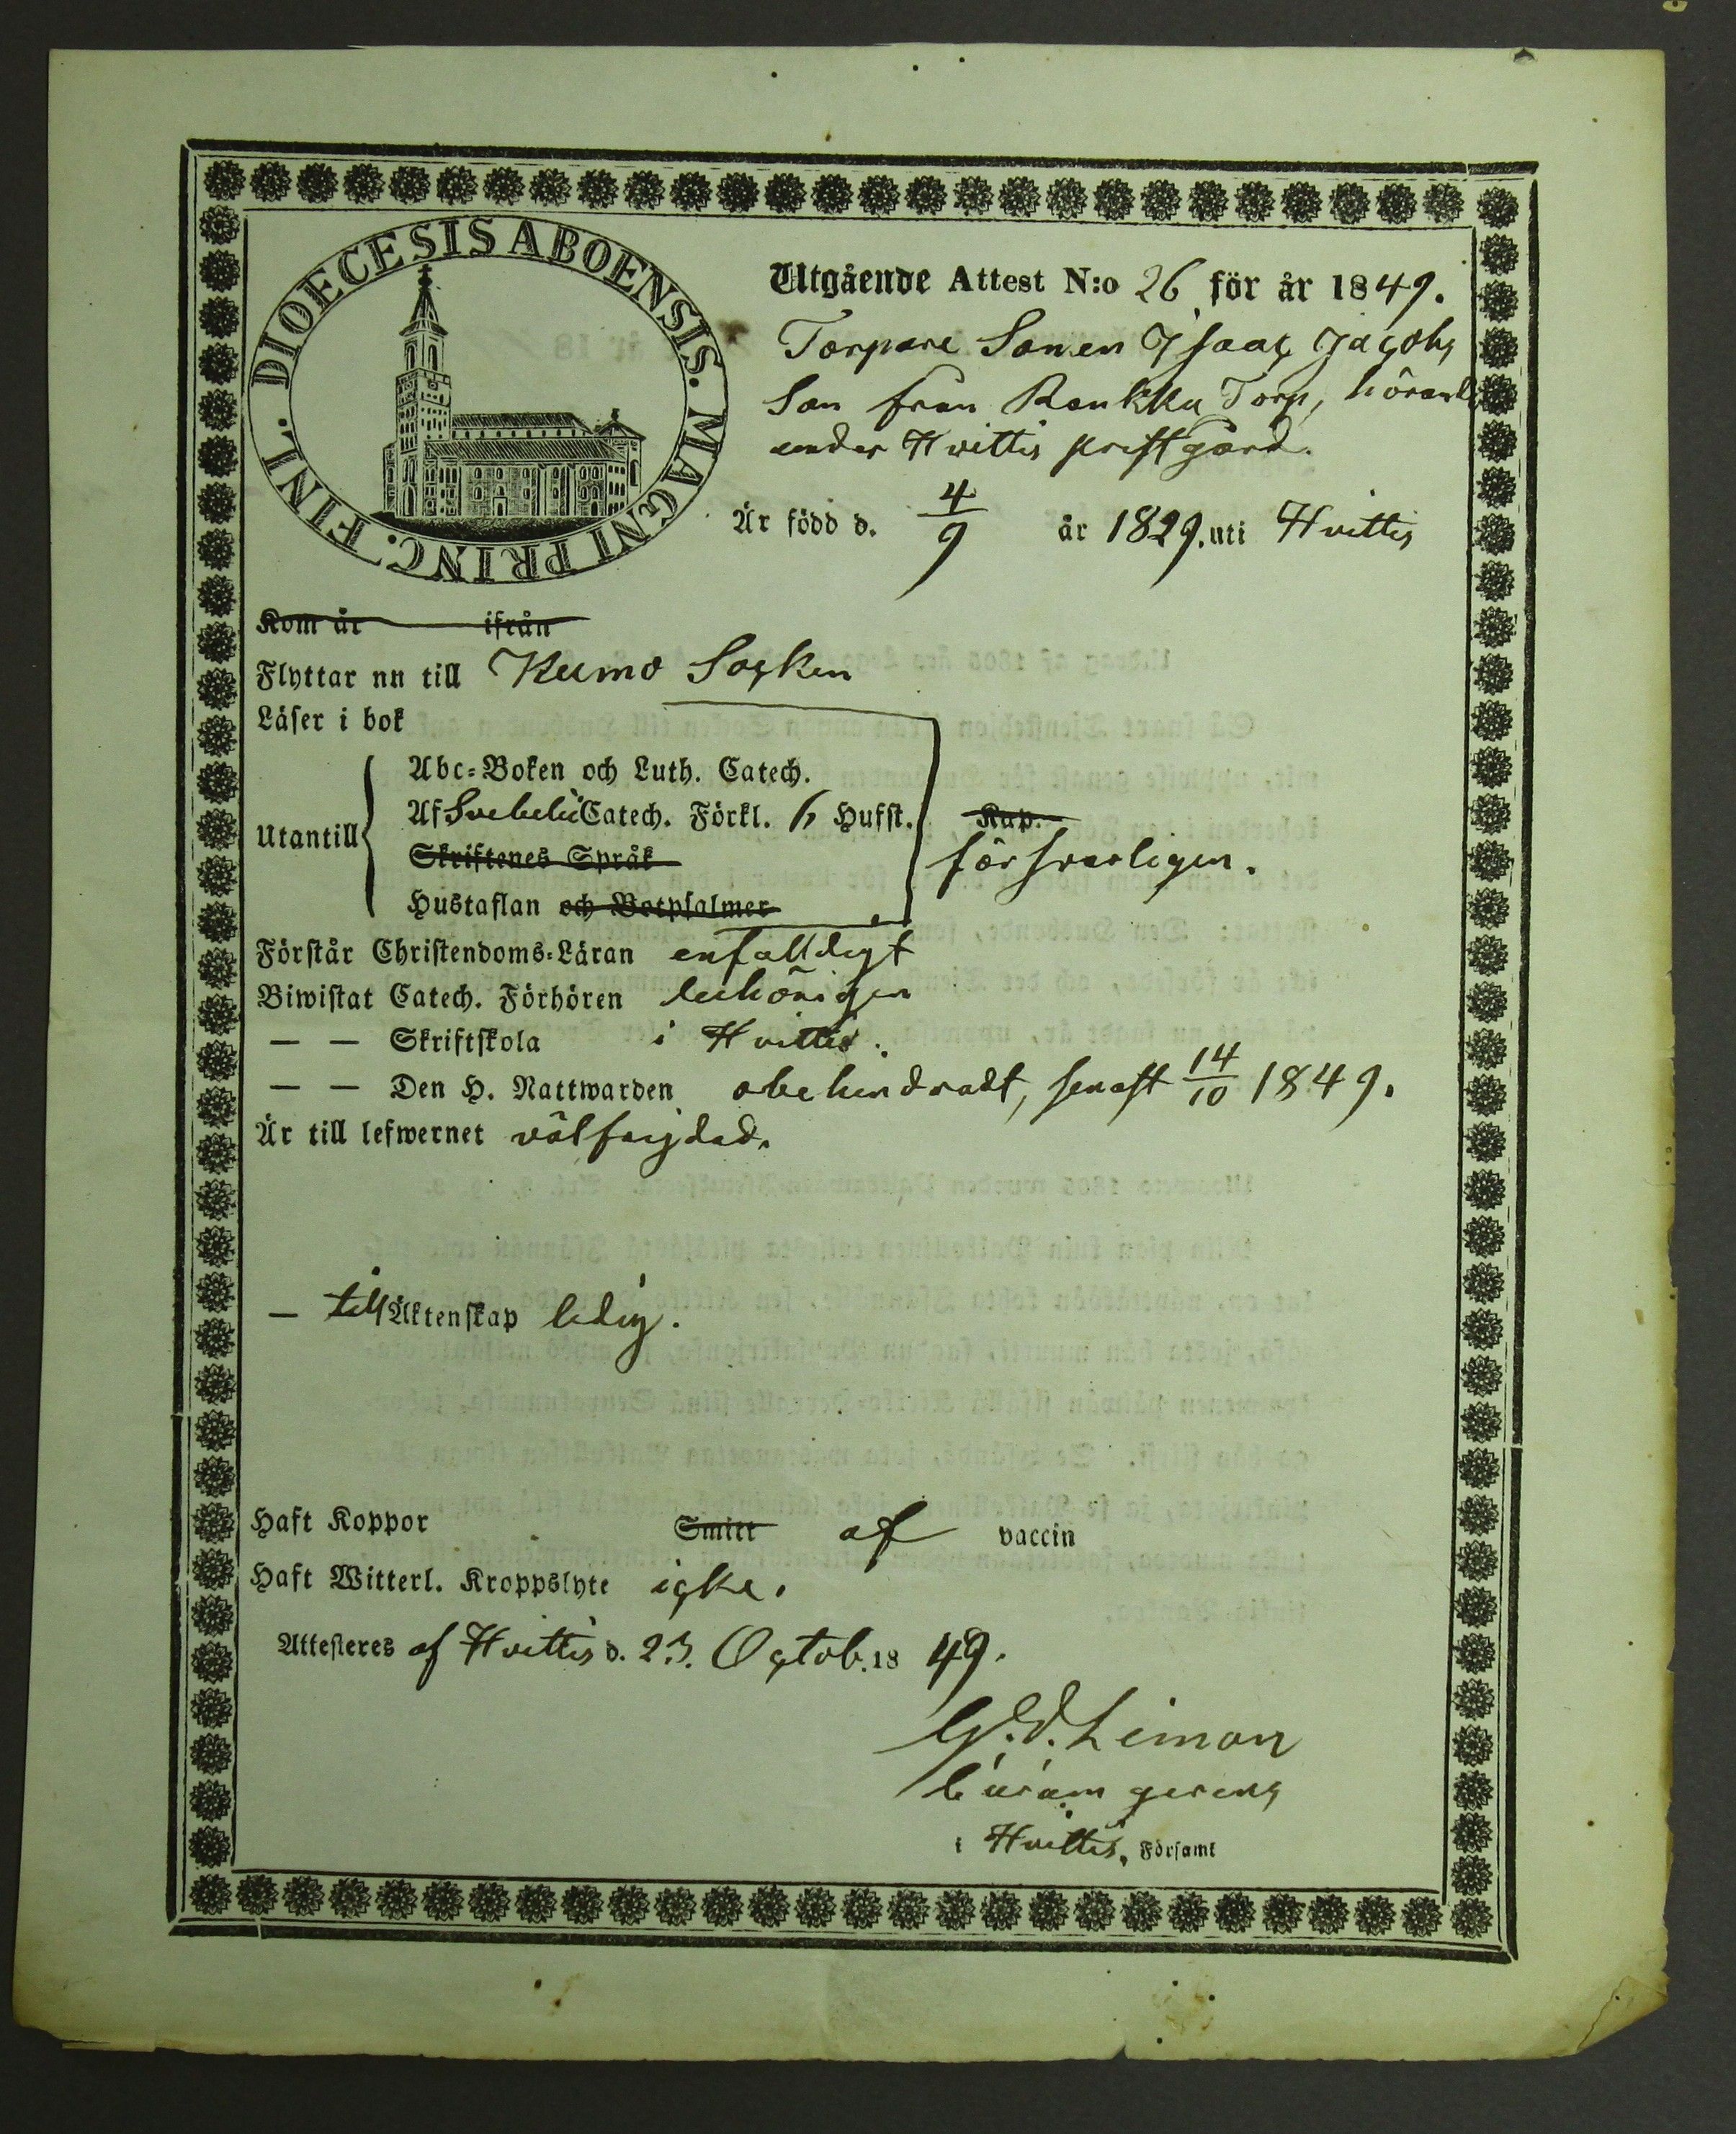 DIOECESIS ABOENSIS. MAGNI PRINC. FINL.
Utgående Attest N:o 26 för år 1849.
Torpare Sonen Isaac Jacobs
Son från Rankku Torp, hörande
under Hvittis prestgård.
Är född d. 4/9 år 1829. uti Hvittis
Kom år ifrån
Flyttar nu till Kumo Socken
Läser i bok
Abc-Boken och Luth. Catech.
Utantill Af Svebelii Catech. Förkl. 6 Hufst. Kap.
Skriftenes Språk försvarligen.
Hustaflan och Botpsalmer
Förstår Christendoms-Läran enfalldigt
Biwistat Catech. Förhören behörigen
— — Skriftskola i Hvittis.
— — Den H. Nattwarden obehindradt, senast 14/10 1849.
Är till lefwernet välfrejdad.
— till Äktenskap ledig.
Haft Koppor Smitt af vaccin
Haft Witterl. Kroppslyte icke.
Attesteres af Hvittis d. 23. Octob. 1849.
G. d. Liman
Curam gerens
i Hvittis. Församl